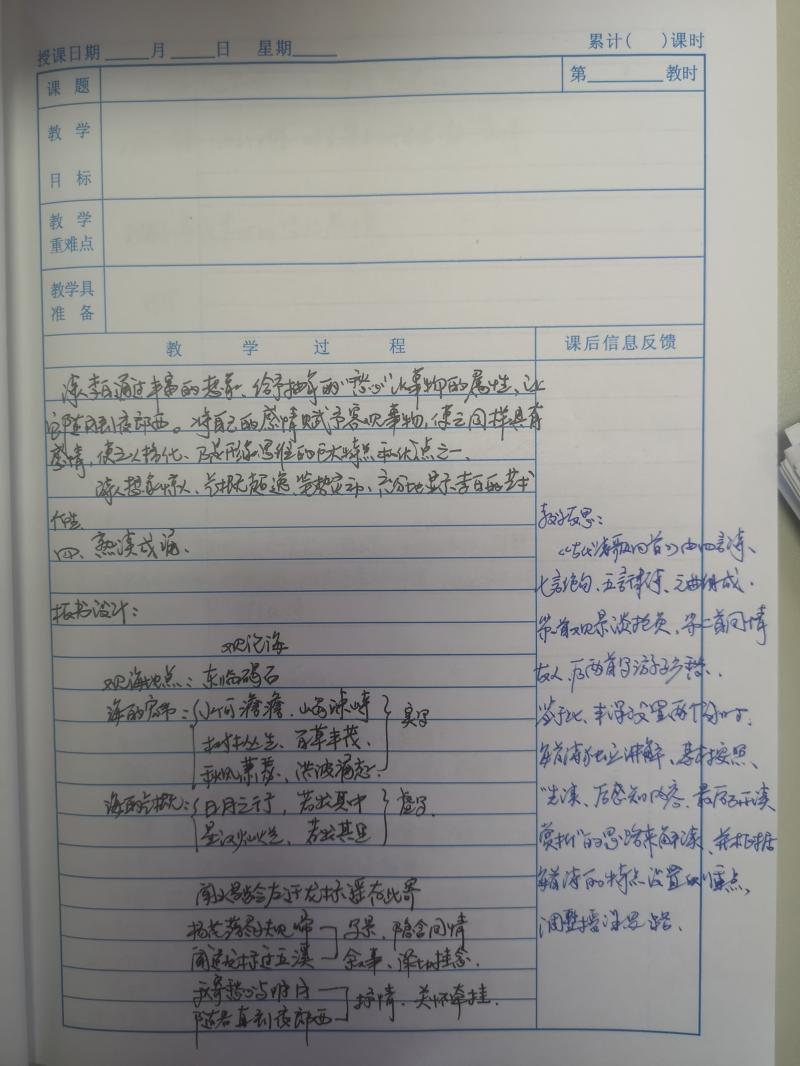 授课日期 月 日 星期 累计( )课时
课 题 第 教时
教 学
目 标
教 学
重难点
教学具
准 备
教 学 过 程 课后信息反馈
诗人李白通过丰富的想象、给予抽象的“愁心”以事物的属性,让
它随风到夜郎西。将自己的感情赋予客观事物,使之同样具有
感情,使之人格化、乃是形象思维的巨大特点和优点之一。
诗人想象惊人、气概超逸、笔势 、充分地显示李白的艺术
个性
四、熟读成诵。
板书设计:
观沧海
观海地点:东临碣石
海的 :水何澹澹、山岛竦峙
树木丛生、百草丰茂、 实写
秋风萧瑟、洪波涌起。
海的气概:日月之行,若出其中
星汉灿烂,若出其里 虚写
闻王昌龄左迁龙标遥有此寄
杨花落尽子规啼 写景、隐含同情
闻道龙标过五溪 叙事、 挂念。
我寄愁心与明月
随君直到夜郎西 抒情、关怀牵挂。
教学反思:
《古代诗歌四首》由四言诗、
七言绝句、五言律诗、元曲组成。
第一首观景 ,第二首同情
友人,后两首写游子乡愁。
鉴于此,本课设置两个课时,
每首诗独立讲解、基本按照
“先读、后感知内容、最后研读
赏析”的思路来解读、并根据
每首诗的特点设置 重点,
调整授课思路。